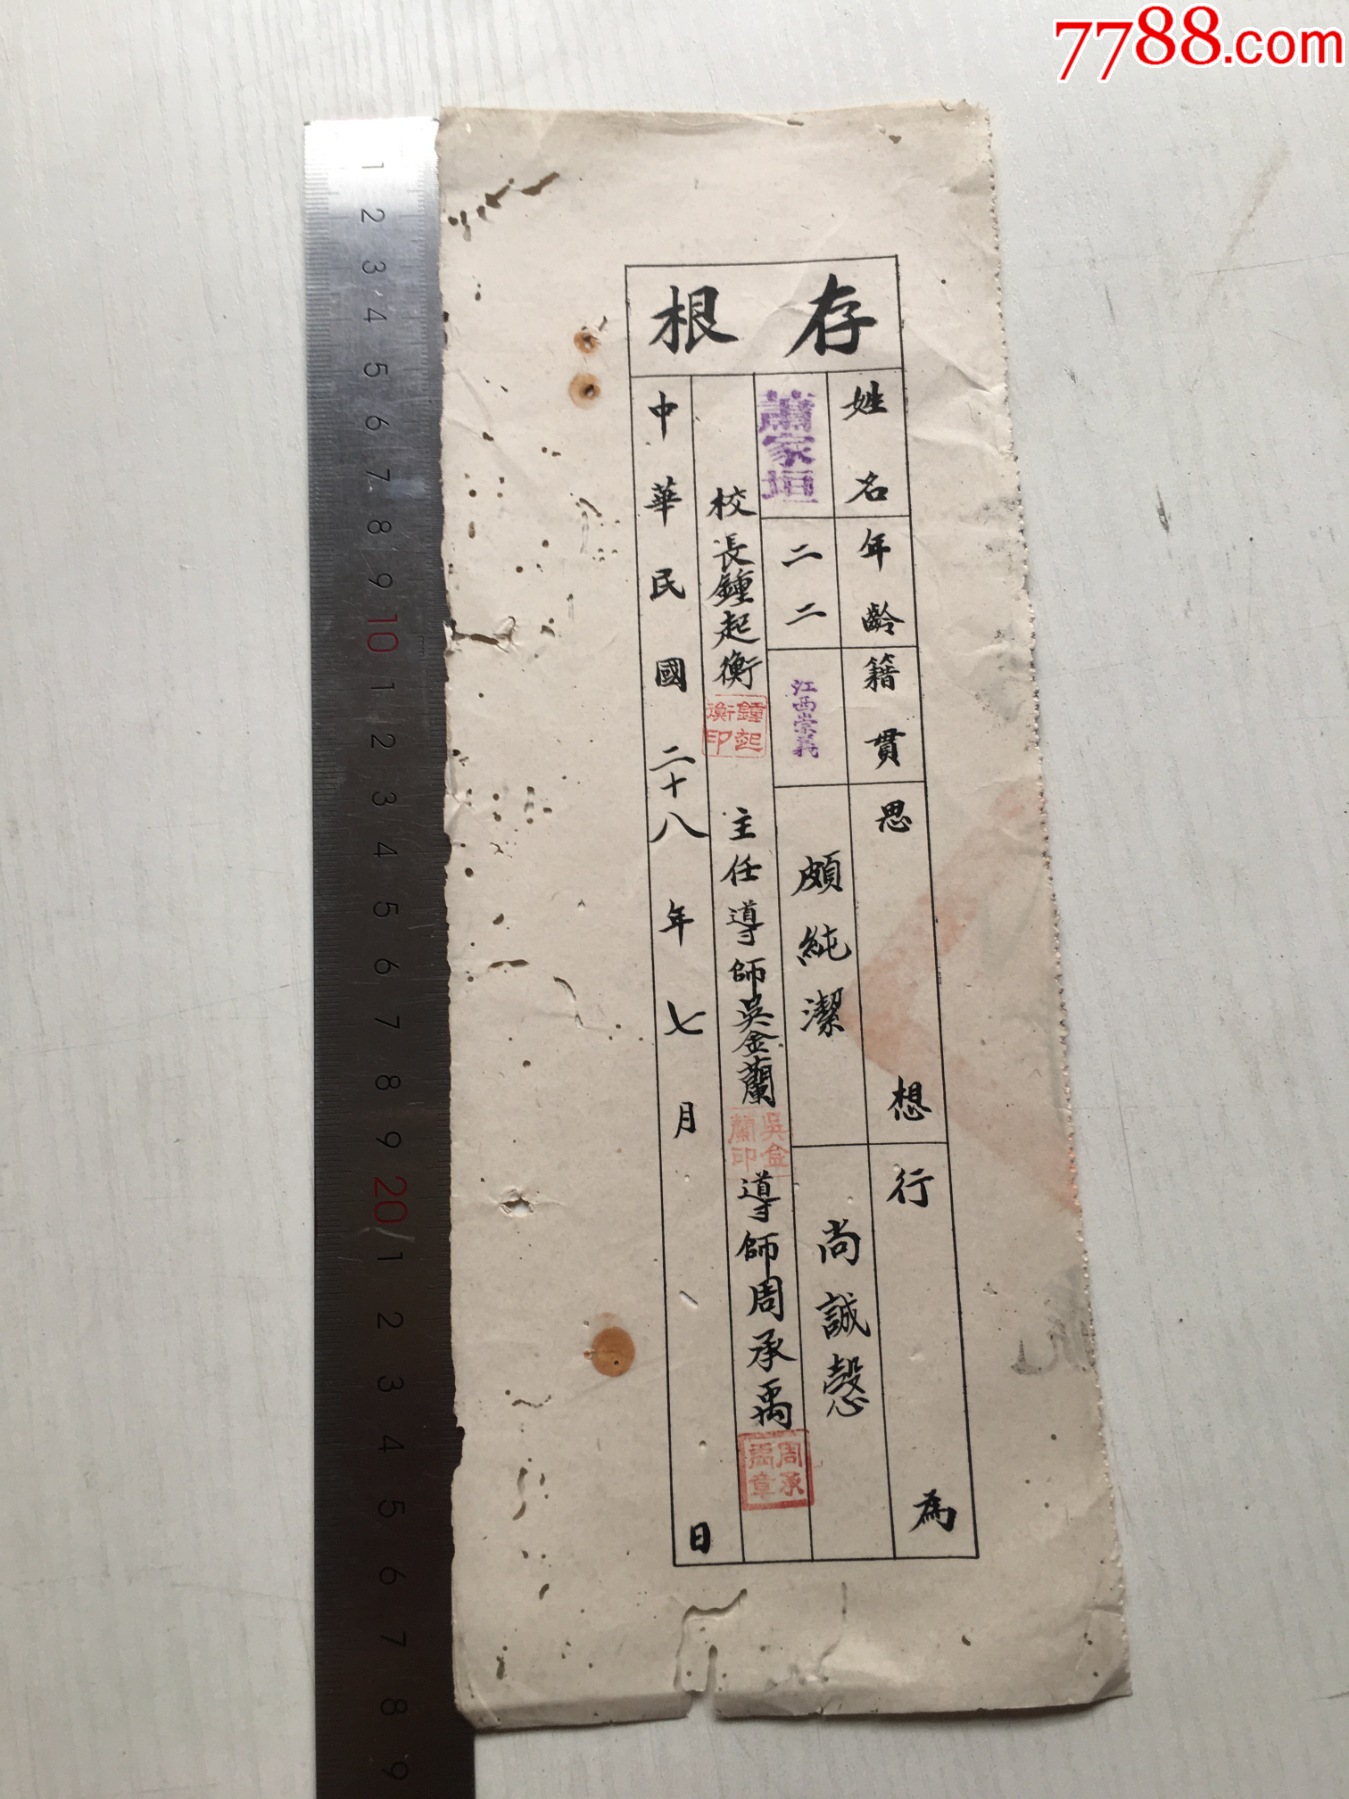 7788.com
存根
姓名
年齡
籍貫
思想
行為
蕭家垣
二二
江西崇義
頗純潔
尚誠慤
校長鍾起衡
鍾起衡印
主任導師吳金蘭
吳金蘭印
導師周承禹
周承禹章
中華民國二十八年七月 日
1 2 3 4 5 6 7 8 9 10 1 2 3 4 5 6 7 8 9 20 1 2 3 4 5 6 7 8 9